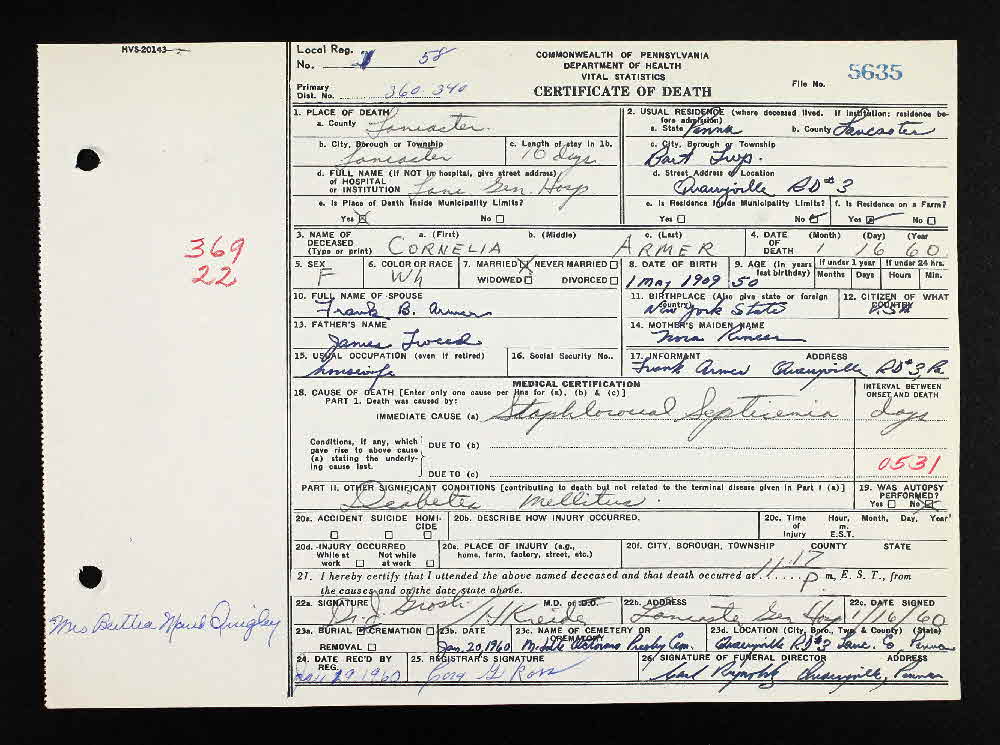 HVS-20143
Local Reg. No. 58
COMMONWEALTH OF PENNSYLVANIA
DEPARTMENT OF HEALTH
VITAL STATISTICS
CERTIFICATE OF DEATH
File No. 5635
Primary Dist. No. 360-340
1. PLACE OF DEATH
a. County Lancaster
b. City, Borough or Township Lancaster
c. Length of stay in 1b. 10 days
d. FULL NAME (If NOT in hospital, give street address) of HOSPITAL or INSTITUTION Lanc Gen. Hosp
e. Is Place of Death Inside Municipality Limits?
Yes No
2. USUAL RESIDENCE (where deceased lived. If institution: residence before admission)
a. State Penna b. County Lancaster
c. City, Borough or Township Bart Twp.
d. Street Address or Location Quarryville RD#3
e. Is Residence Inside Municipality Limits? Yes No
f. Is Residence on a Farm? Yes No
3. NAME OF DECEASED (Type or print) a. (First) b. (Middle) c. (Last)
CORNELIA ARMER
4. DATE OF DEATH (Month) (Day) (Year)
1 16 60
5. SEX F
6. COLOR OR RACE Wh
7. MARRIED NEVER MARRIED WIDOWED DIVORCED
8. DATE OF BIRTH 1 May 1909
9. AGE (In years last birthday) 50
If under 1 year Months Days
If under 24 hrs. Hours Min.
10. FULL NAME OF SPOUSE
Frank B. Armer
11. BIRTHPLACE (Also give state or foreign country)
New York State
12. CITIZEN OF WHAT COUNTRY
U.S.A
13. FATHER'S NAME
James Tweed
14. MOTHER'S MAIDEN NAME
Nora
15. USUAL OCCUPATION (even if retired)
housewife
16. Social Security No..
17. INFORMANT ADDRESS
Frank Armer Quarryville RD#3, Pa.
MEDICAL CERTIFICATION
18. CAUSE OF DEATH [Enter only one cause per line for (a), (b) & (c)]
PART 1. Death was caused by:
IMMEDIATE CAUSE (a) Septicemia
INTERVAL BETWEEN ONSET AND DEATH
days
Conditions, if any, which gave rise to above cause (a) stating the underlying cause last.
DUE TO (b)
DUE TO (c)
0531
369
22
PART II. OTHER SIGNIFICANT CONDITIONS [contributing to death but not related to the terminal disease given in Part I (a)]
Diabetes mellitus.
19. WAS AUTOPSY PERFORMED?
Yes No
20a. ACCIDENT SUICIDE HOMICIDE
20b. DESCRIBE HOW INJURY OCCURRED.
20c. Time of Injury Hour, m. E.S.T. Month, Day, Year
20d. INJURY OCCURRED While at work Not while at work
20e. PLACE OF INJURY (e.g., home, farm, factory, street, etc.)
20f. CITY, BOROUGH, TOWNSHIP COUNTY STATE
21. I hereby certify that I attended the above named deceased and that death occurred at 11:17 p m, E. S. T., from
the causes and on the date state above.
22a. SIGNATURE M.D. or D.O.
Dr. J. Grosh / H Kreider
22b. ADDRESS
Lancaster Gen Hosp
22c. DATE SIGNED
1/16/60
Mrs Bertha Quigley
23a. BURIAL CREMATION REMOVAL
23b. DATE
Jan. 20, 1960
23c. NAME OF CEMETERY OR CREMATORY
Middle Octorara Presby Cem.
23d. LOCATION (City, Boro., Twp. & County) (State)
Quarryville RD#3 Lanc. Co, Penna
24. DATE REC'D BY REG.
1960
25. REGISTRAR'S SIGNATURE
Ross
26. SIGNATURE OF FUNERAL DIRECTOR ADDRESS
Quarryville, Penna